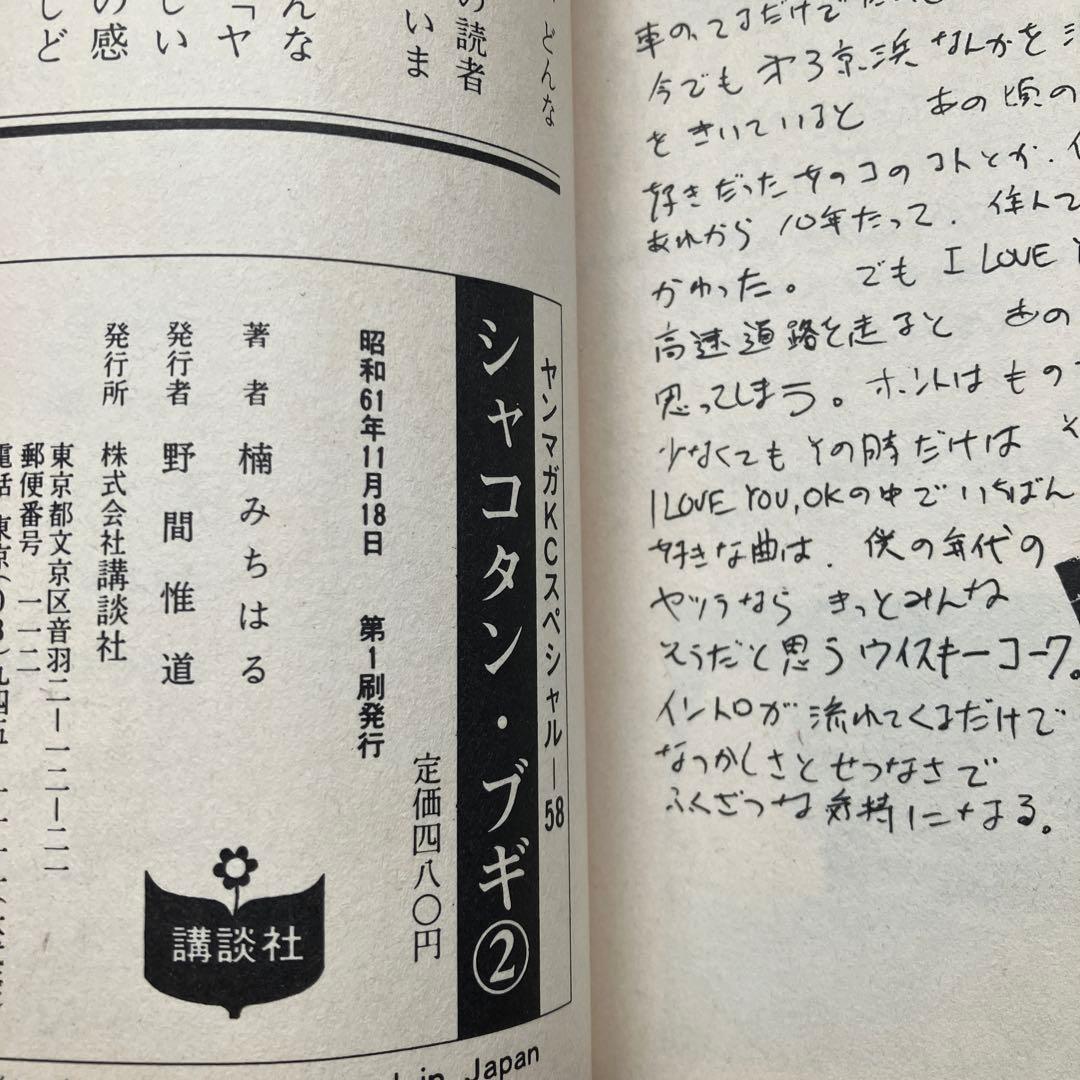 車のってるだけで
今でも 第3京浜 なんかを
をきいていると あの頃の
好きだった女のコのコトとか、
あれから 10年たって、住んで
かわった。 でも I LOVE
高速道路を走ると あの
思ってしまう。ホントはもの
少なくてもその時だけは
I LOVE YOU,OKの中でいちばん
好きな曲は、僕の年代の
ヤツラなら きっとみんな
そうだと思うウイスキーコーク。
イントロが 流れてくるだけで
なつかしさとせつなさで
ふくざつな気持ちになる。
どんな
の読者
いま
んな
「ヤ
しい
の感
しど
ヤンマガKCスペシャル—58
シャコタン・ブギ②
定価四八〇円
昭和61年11月18日 第1刷発行
著者 楠みちはる
発行者 野間惟道
発行所 株式会社講談社
東京都文京区音羽二—一二—二一
郵便番号 一一二
電話 東京(03)九四五
講談社
in Japan